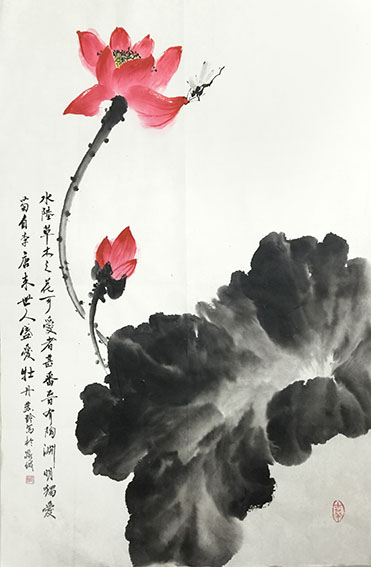 水陸草木之花可愛者甚蕃晉陶淵明獨愛
菊自李唐來世人盛愛牡丹